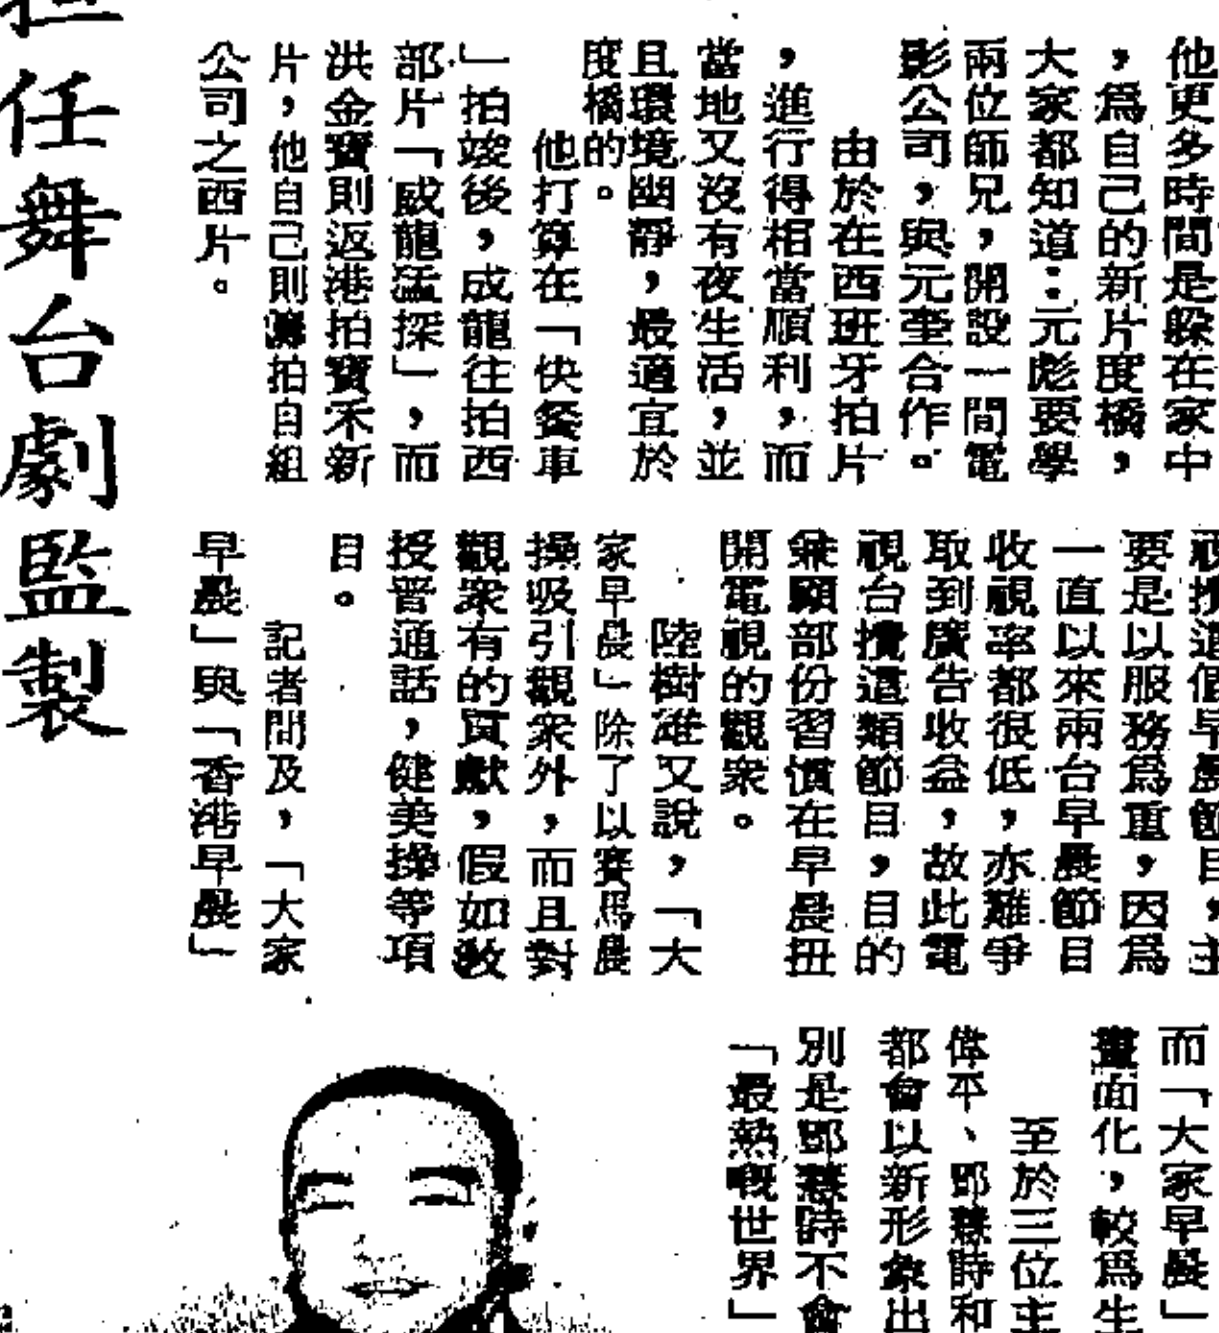 他更多時間是躲在家中
，爲自己的新片度橋，
大家都知道：元彪要學
兩位師兄，開設一間電
影公司，與元奎合作。
由於在西班牙拍片
，進行得相當順利，而
當地又沒有夜生活，並
且環境幽靜，最適宜於
度橋的。
他打算在「快餐車
」拍竣後，成龍往拍西
部片「威龍猛探」，而
洪金寶則返港拍寶禾新
片，他自己則籌拍自組
公司之西片。
任舞台劇監製
視攪這個早晨節目，主
要是以服務爲重，因爲
一直以來兩台早晨節目
收視率都很低，亦難爭
取到廣告收益，故此電
視台攪這類節目，目的
兼顧部份習慣在早晨扭
開電視的觀衆。
陸樹雄又說，「大
家早晨」除了以賽馬晨
操吸引觀衆外，而且對
觀衆有的貢獻，假如敎
授普通話，健美操等項
目。
記者問及，「大家
早晨」與「香港早晨」
而「大家早晨」
畫面化，較爲生
至於三位主
偉平、鄧慧詩和
都會以新形象出
別是鄧慧詩不會
「最熱嘅世界」